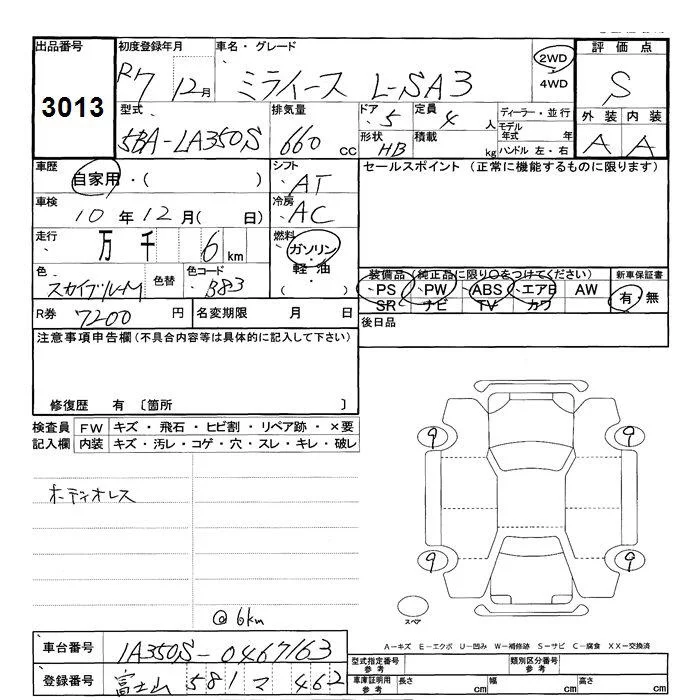 出品番号 初度登録年月 車名・グレード 2WD 評価点
3013 R7 12月 ミライース L-SA3 4WD S
型式 排気量 ドア 定員 ディーラー・並行 外装 内装
5BA-LA350S 660 CC 5 4 人 モデル年式 年 A A
形状 HB 積載 kg ハンドル 左・右
車歴 自家用・( ) シフト AT セールスポイント (正常に機能するものに限ります)
車検 10年12月( 日) 冷房 AC
走行 万 千 6 km 燃料 ガソリン・軽油・( )
色 スカイブルーM 色替 色コード B83
装備品 (純正品に限り○をつけてください) 新車保証書
PS PW ABS エアB AW 有・無
SR ナビ TV カワ
R券 7200 円 名変期限 月 日 後日品
注意事項申告欄 (不具合内容等は具体的に記入して下さい)
修復歴 有 〔箇所 〕
検査員 FW キズ・飛石・ヒビ割・リペア跡・×要
記入欄 内装 キズ・汚レ・コゲ・穴・スレ・キレ・破レ
9 9
ボディオレス
9 9
@6km
スペア
A-キズ E-エクボ U-凹み W-補修跡 S-サビ C-腐食 XX-交換済
車台番号 LA350S-0467163
型式指定番号 参考 類別区分番号 参考
登録番号 富士山 581 マ 462
車庫証明用 参考 長さ cm 幅 cm 高さ cm